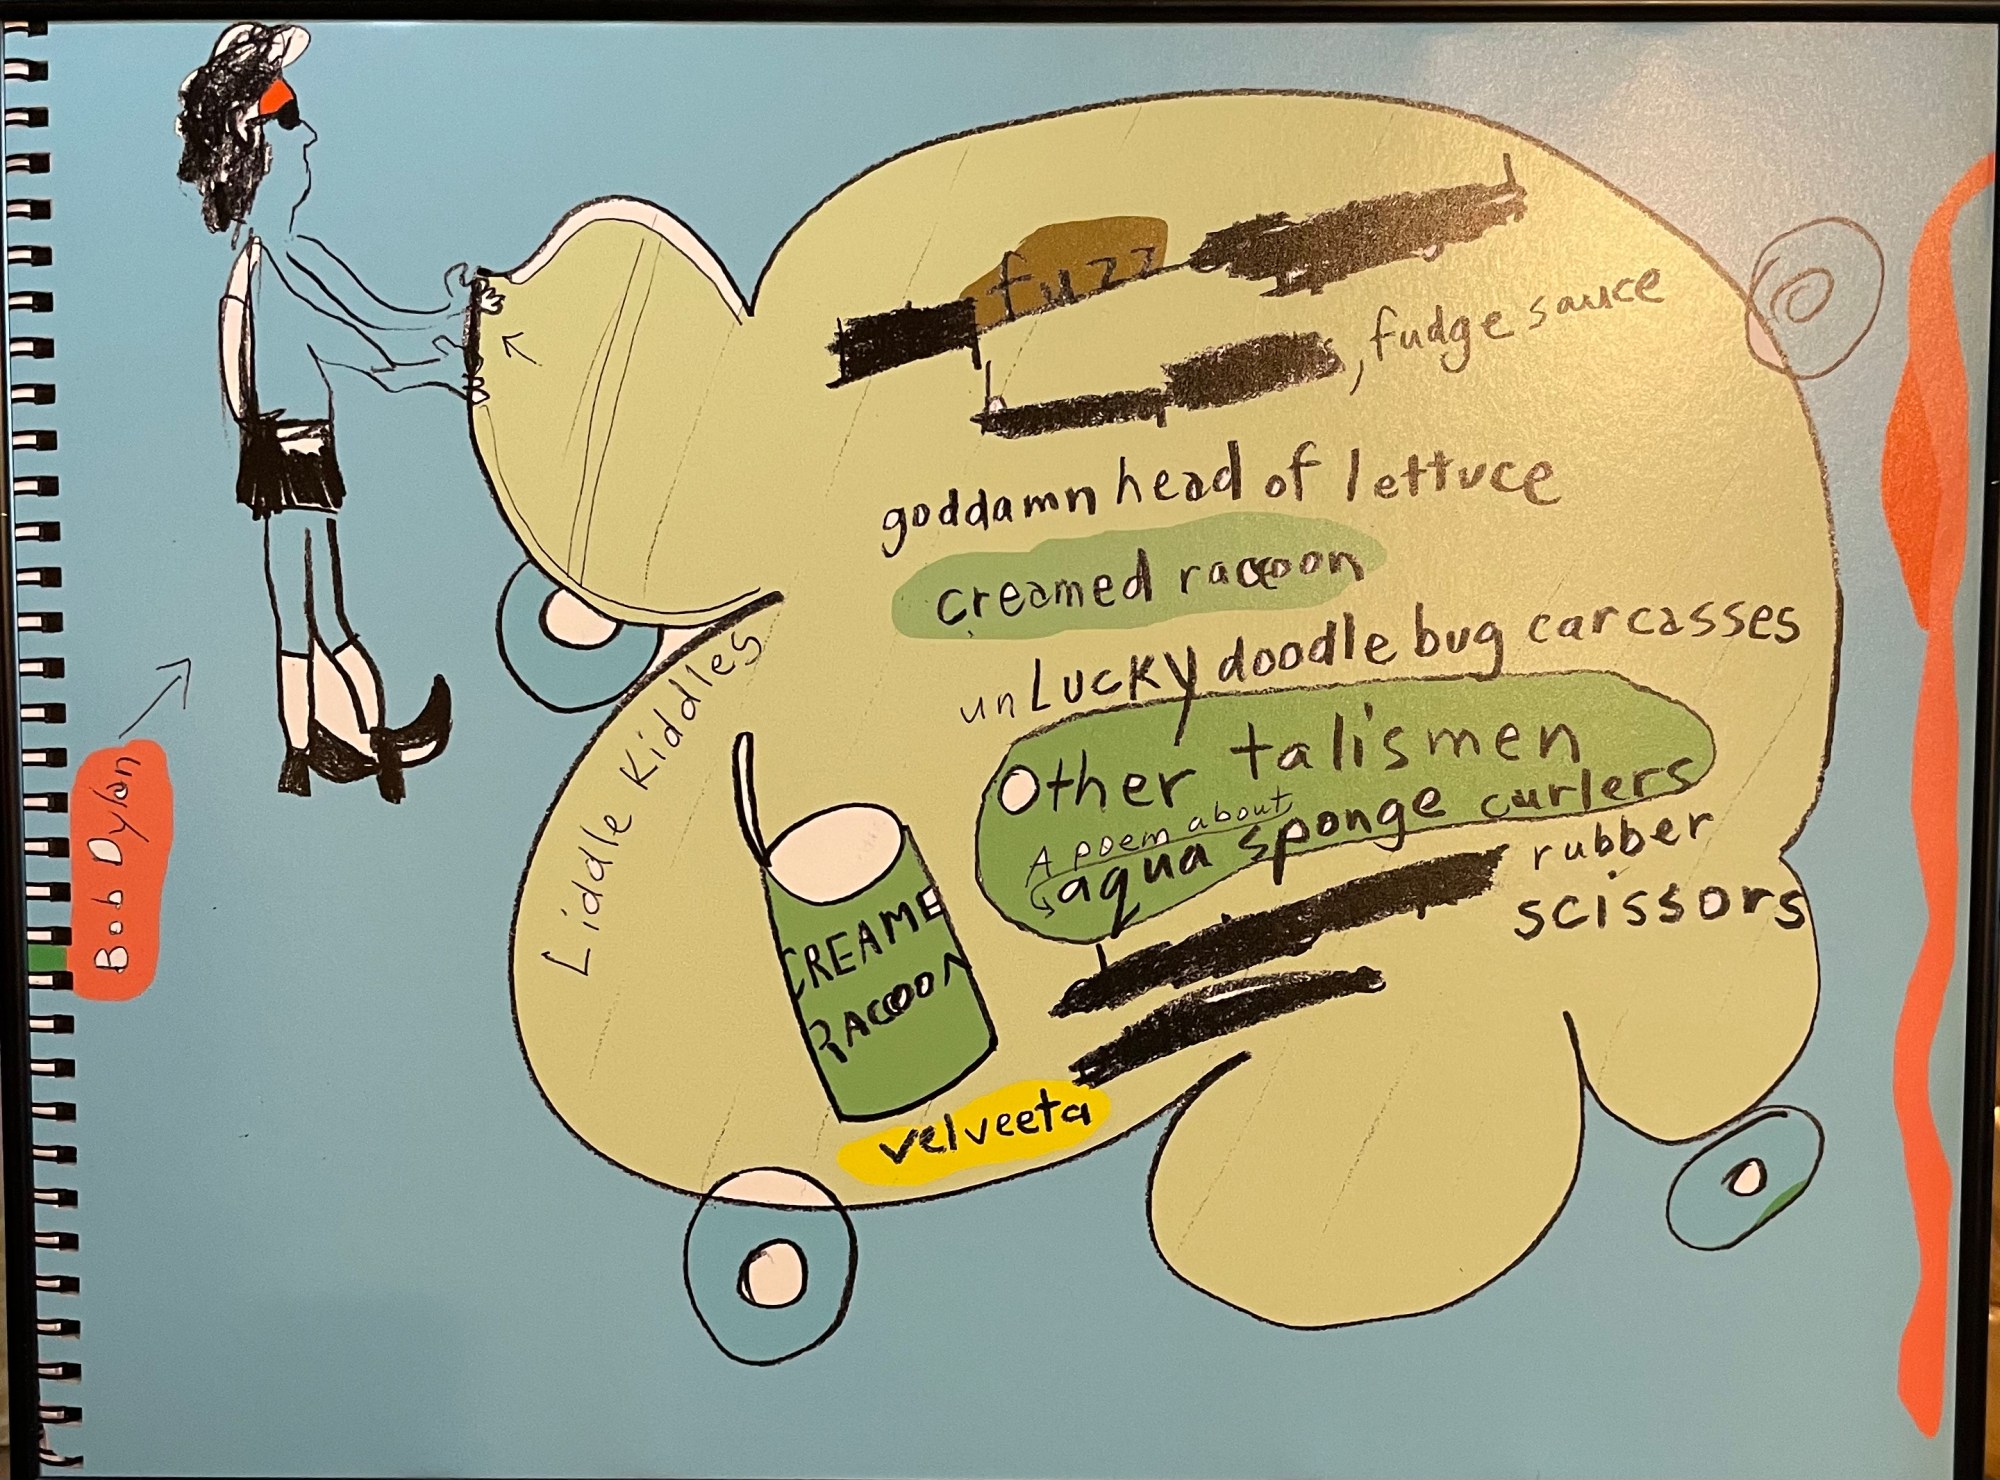 fuzz
, fudge sauce
goddamn head of lettuce
creamed raccoon
unLucky doodle bug carcasses
Other talismen
A poem about
aqua sponge curlers
rubber
scissors
Liddle Kiddles
CREAME
RACOON
velveeta
Bob Dylan